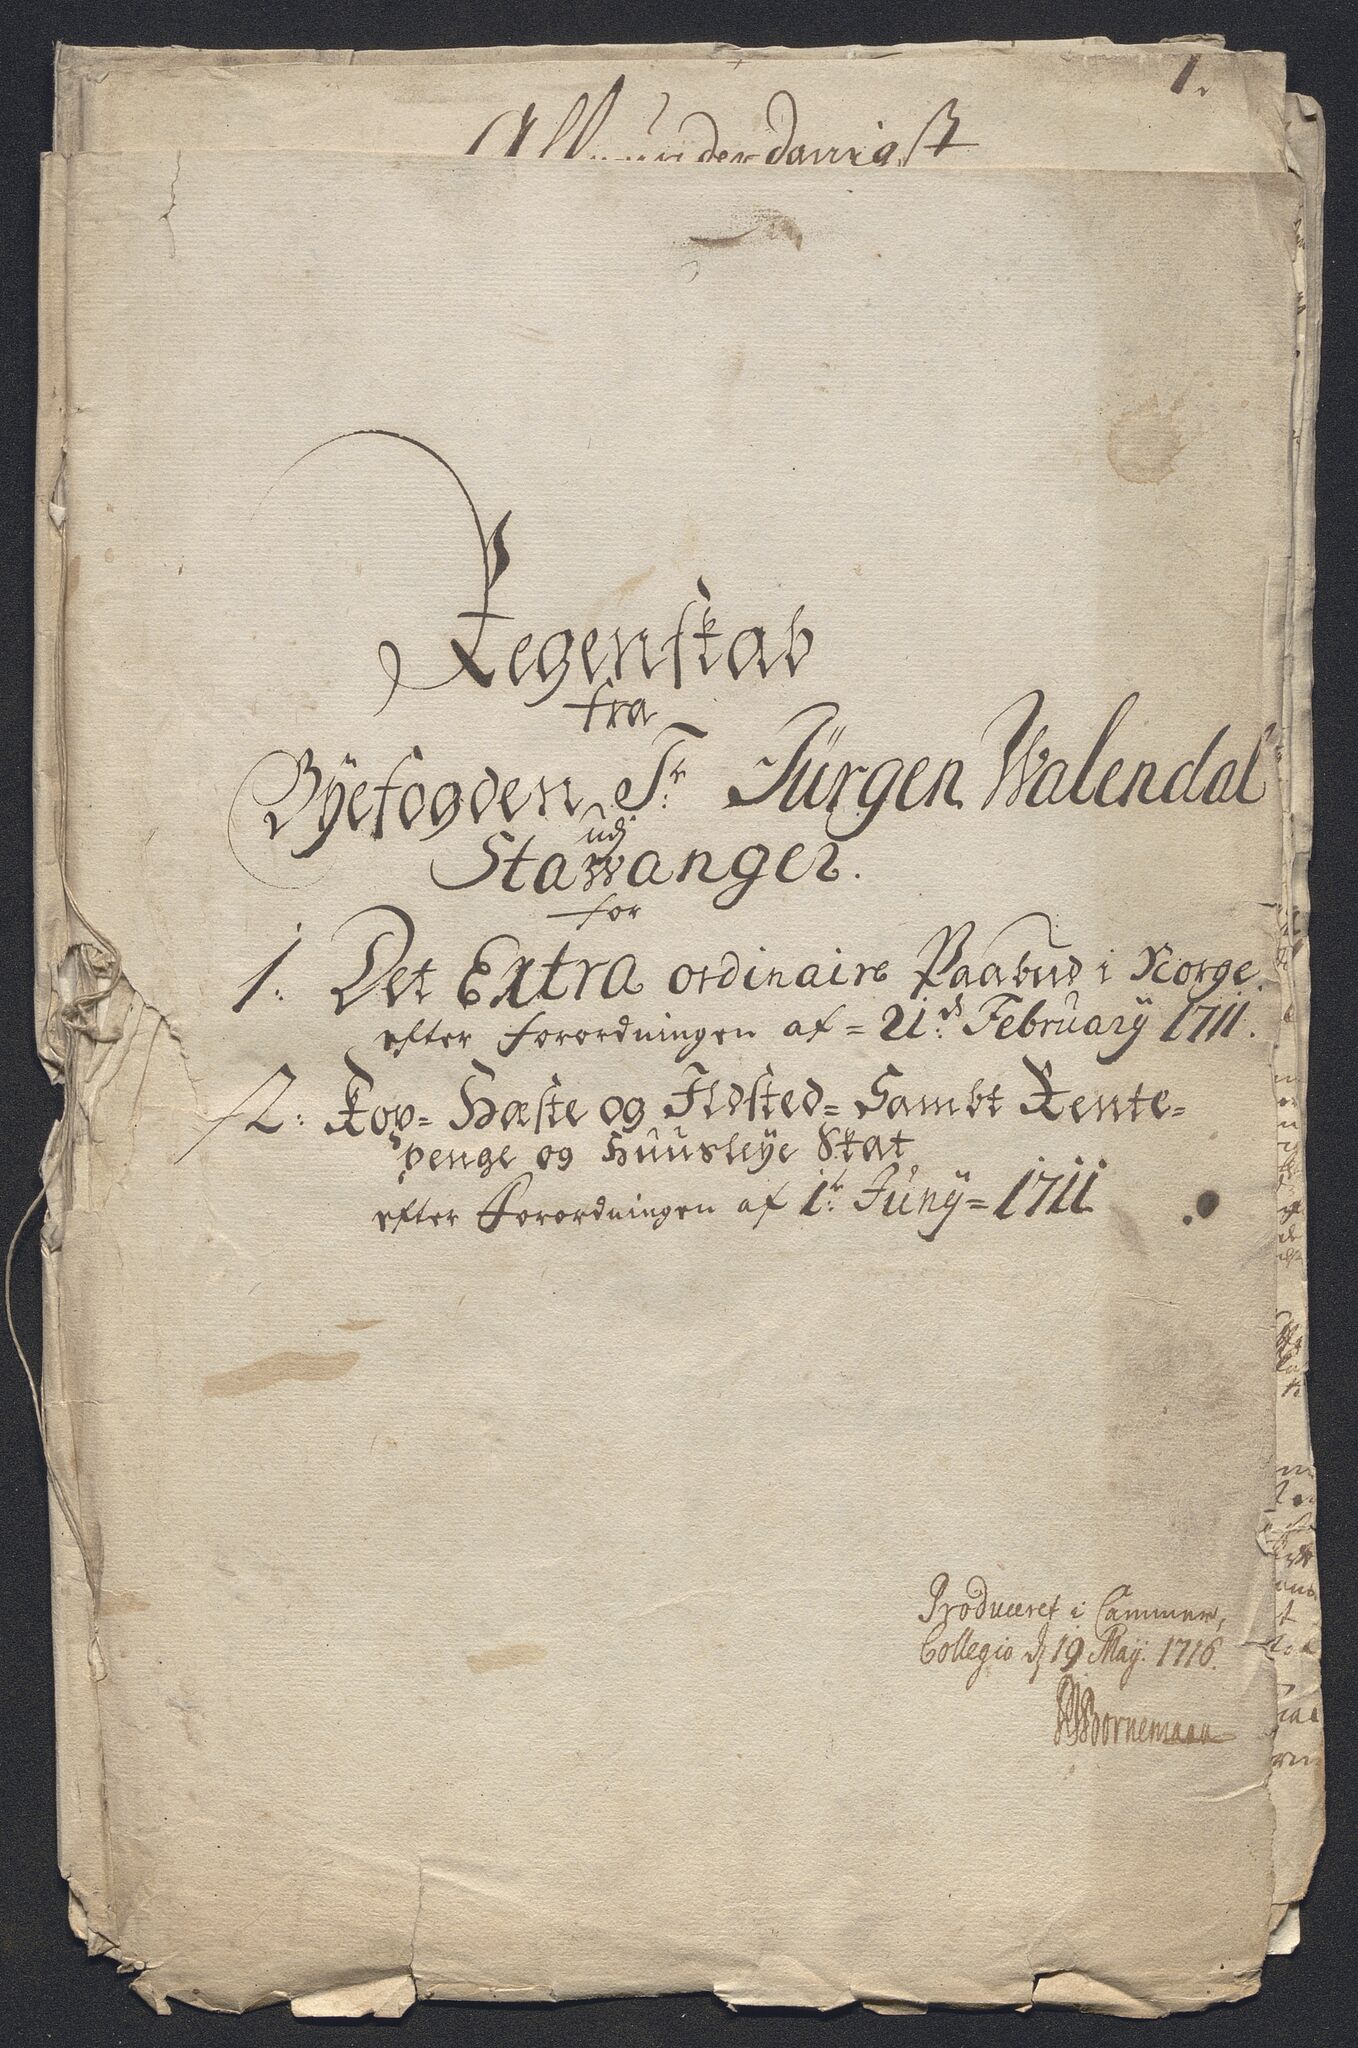 1.
Allerunderdanigst
Regenskab
fra
Byefogden Sr Jürgen Walendal
udj
Stawanger.
for
1. Det Extra ordinaire Paabud i Norge
efter forordningen af = 21.d February 1711.
2. Kop= Hæste og Ildsted= Sambt Rente=
penge og Huusleye Skat
efter Forordningen af 1.te Juny = 1711
Produceret i Cammer,
Collegio d 19 May. 1716.
Bornemann